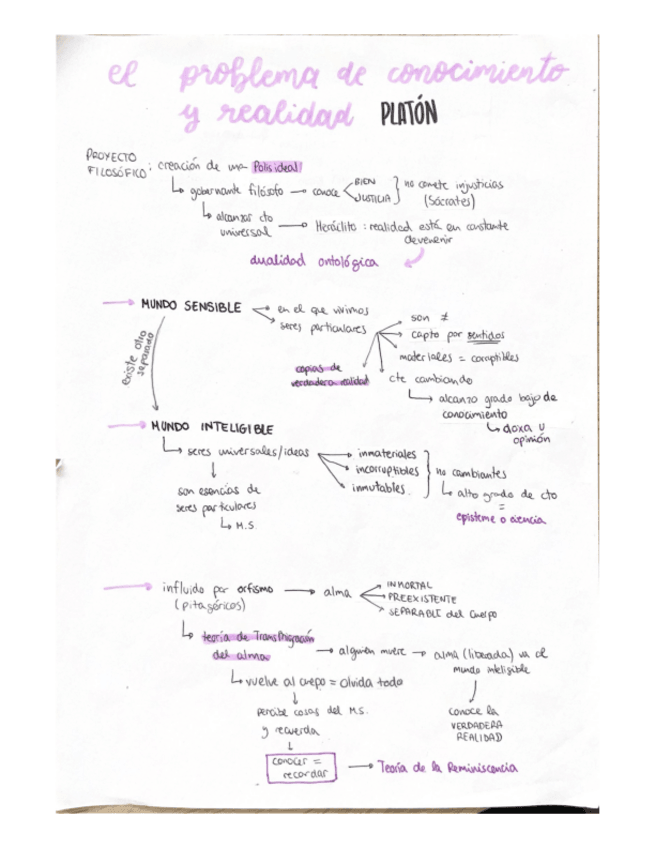 el problema de conocimiento
y realidad PLATÓN
PROYECTO
FILOSÓFICO : creación de una Polis ideal
gobernante filósofo → conoce < BIEN
JUSTICIA } no comete injusticias
(Sócrates)
alcanzar cto
universal → Heráclito : realidad está en constante
devenenir
dualidad ontológica
→ MUNDO SENSIBLE
en el que vivimos
seres particulares
son ≠
capto por sentidos
materiales = corruptibles
cte cambiando
copias de
verdadera realidad
alcanzo grado bajo de
conocimiento
doxa u
opinión
existe otro
separado
→ MUNDO INTELIGIBLE
seres universales/ideas
inmateriales
incorruptibles
inmutables.
no cambiantes
alto grado de cto
=
episteme o ciencia
son esencias de
seres particulares
M.S.
→ influido por orfismo → alma
(pitagóricos)
INMORTAL
PREEXISTENTE
SEPARABLE del cuerpo
teoría de Transmigración
del alma
→ alguien muere → alma (liberada) va al
mundo inteligible
vuelve al cuerpo = olvida todo
percibe cosas del M.S.
y recuerda
conoce la
VERDADERA
REALIDAD
conocer =
recordar
→ Teoría de la Reminiscencia